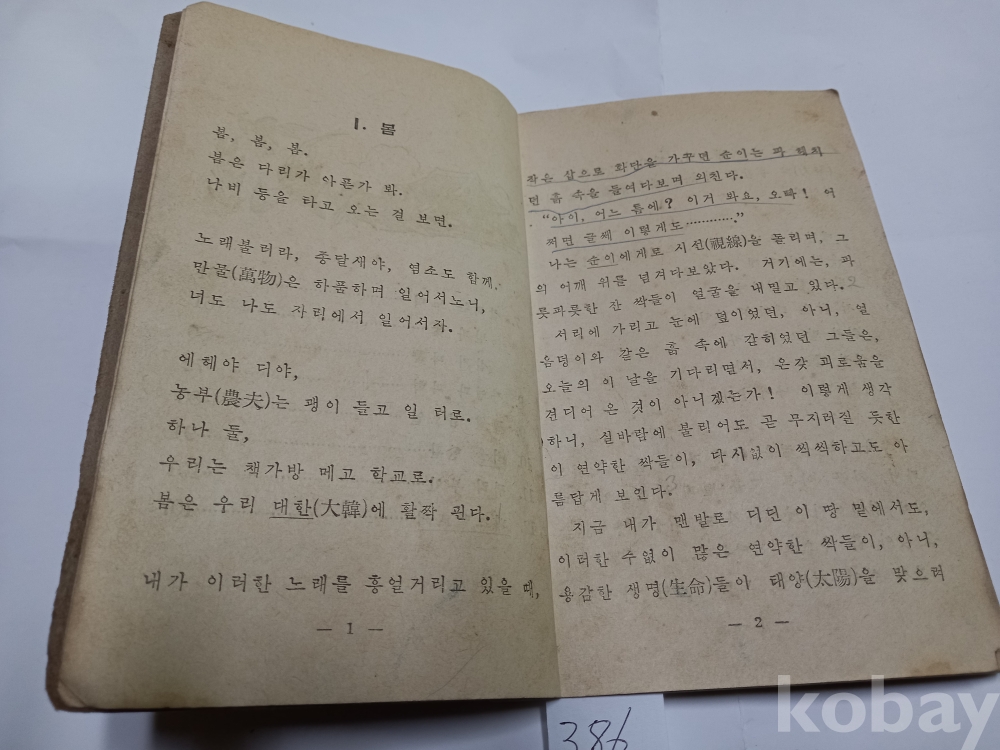 1. 봄
봄, 봄, 봄.
봄은 다리가 아픈가 봐.
나비 등을 타고 오는 걸 보면.
노래불러라, 종달새야, 염소도 함께.
만물(萬物)은 하품하며 일어서노니,
너도 나도 자리에서 일어서자.
에헤야 디야,
농부(農夫)는 괭이 들고 일 터로.
하나 둘,
우리는 책가방 메고 학교로.
봄은 우리 대한(大韓)에 활짝 핀다.
내가 이러한 노래를 흥얼거리고 있을 때,
— 1 —
작은 삽으로 화단을 가꾸던 순이는 파 헤치
던 흙 속을 들여다보며 외친다.
“아이, 어느 틈에? 이거 봐요, 오빠! 어
쩌면 글쎄 이렇게도…………”
나는 순이에게로 시선(視線)을 돌리며, 그
의 어깨 위를 넘겨다보았다. 거기에는, 파
릇파릇한 잔 싹들이 얼굴을 내밀고 있다.
서리에 가리고 눈에 덮이었던, 아니, 얼
음덩이와 같은 흙 속에 갇히었던 그들은,
오늘의 이 날을 기다리면서, 온갖 괴로움을
견디어 온 것이 아니겠는가! 이렇게 생각
하니, 실바람에 불리어도 곧 무지러질 듯한
이 연약한 싹들이, 다시없이 씩씩하고도 아
름답게 보인다.
지금 내가 맨발로 디딘 이 땅 밑에서도,
이러한 수없이 많은 연약한 싹들이, 아니,
용감한 생명(生命)들이 태양(太陽)을 맞으려
— 2 —
386
kobay